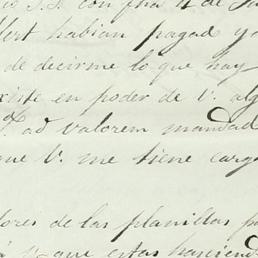 con fha 4 de
habian pagad y
de decirme lo que hay
existe en poder de V. alg
ad valorem mandad
que V. me tiene carga
ores de las planillas p
que estas haciend